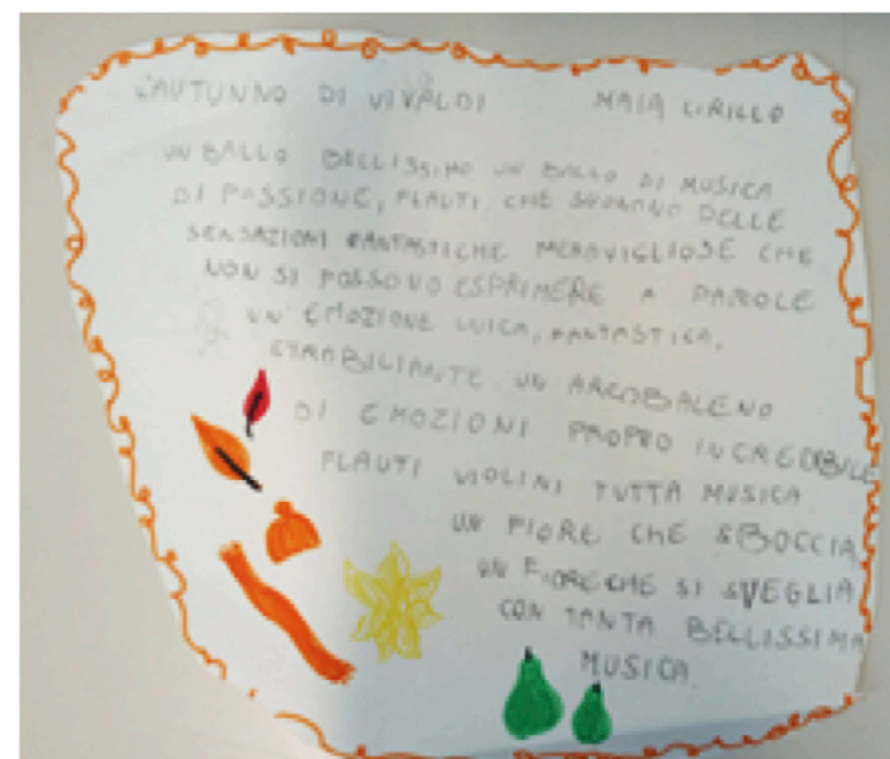 L'AUTUNNO DI VIVALDI MAIA CIRILLO
UN BALLO BELLISSIMO UN BALLO DI MUSICA
DI PASSIONE, FLAUTI CHE SUONANO DELLE
SENSAZIONI FANTASTICHE MERAVIGLIOSE CHE
NON SI POSSONO ESPRIMERE A PAROLE
UN'EMOZIONE UNICA, FANTASTICA,
STRABILIANTE UN ARCOBALENO
DI EMOZIONI PROPRO INCREDIBILE
FLAUTI VIOLINI TUTTA MUSICA
UN FIORE CHE SBOCCIA
UN FIORE CHE SI SVEGLIA
CON TANTA BELLISSIMA
MUSICA